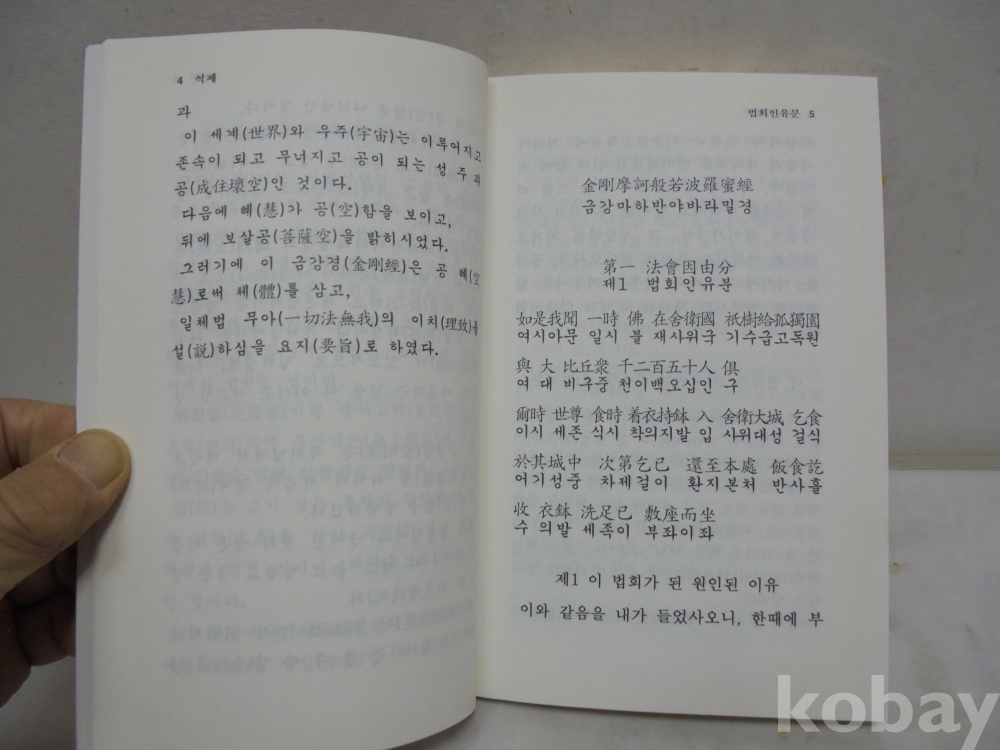 4 석제
과
이 세계(世界)와 우주(宇宙)는 이루어지고
존속이 되고 무너지고 공이 되는 성주괴
공(成住壞空)인 것이다.
다음에 혜(慧)가 공(空)함을 보이고,
뒤에 보살공(菩薩空)을 밝히시었다.
그러기에 이 금강경(金剛經)은 공혜(空
慧)로써 체(體)를 삼고,
일체법 무아(一切法無我)의 이치(理致)를
설(說)하심을 요지(要旨)로 하였다.
법회인유분 5
金剛摩訶般若波羅蜜經
금강마하반야바라밀경
第一 法會因由分
제1 법회인유분
如是我聞 一時 佛 在舍衛國 祇樹給孤獨園
여시아문 일시 불 재사위국 기수급고독원
與 大 比丘衆 千二百五十人 俱
여 대 비구중 천이백오십인 구
爾時 世尊 食時 着衣持鉢 入 舍衛大城 乞食
이시 세존 식시 착의지발 입 사위대성 걸식
於其城中 次第乞已 還至本處 飯食訖
어기성중 차제걸이 환지본처 반사흘
收 衣鉢 洗足已 敷座而坐
수 의발 세족이 부좌이좌
제1 이 법회가 된 원인된 이유
이와 같음을 내가 들었사오니, 한때에 부
kobay